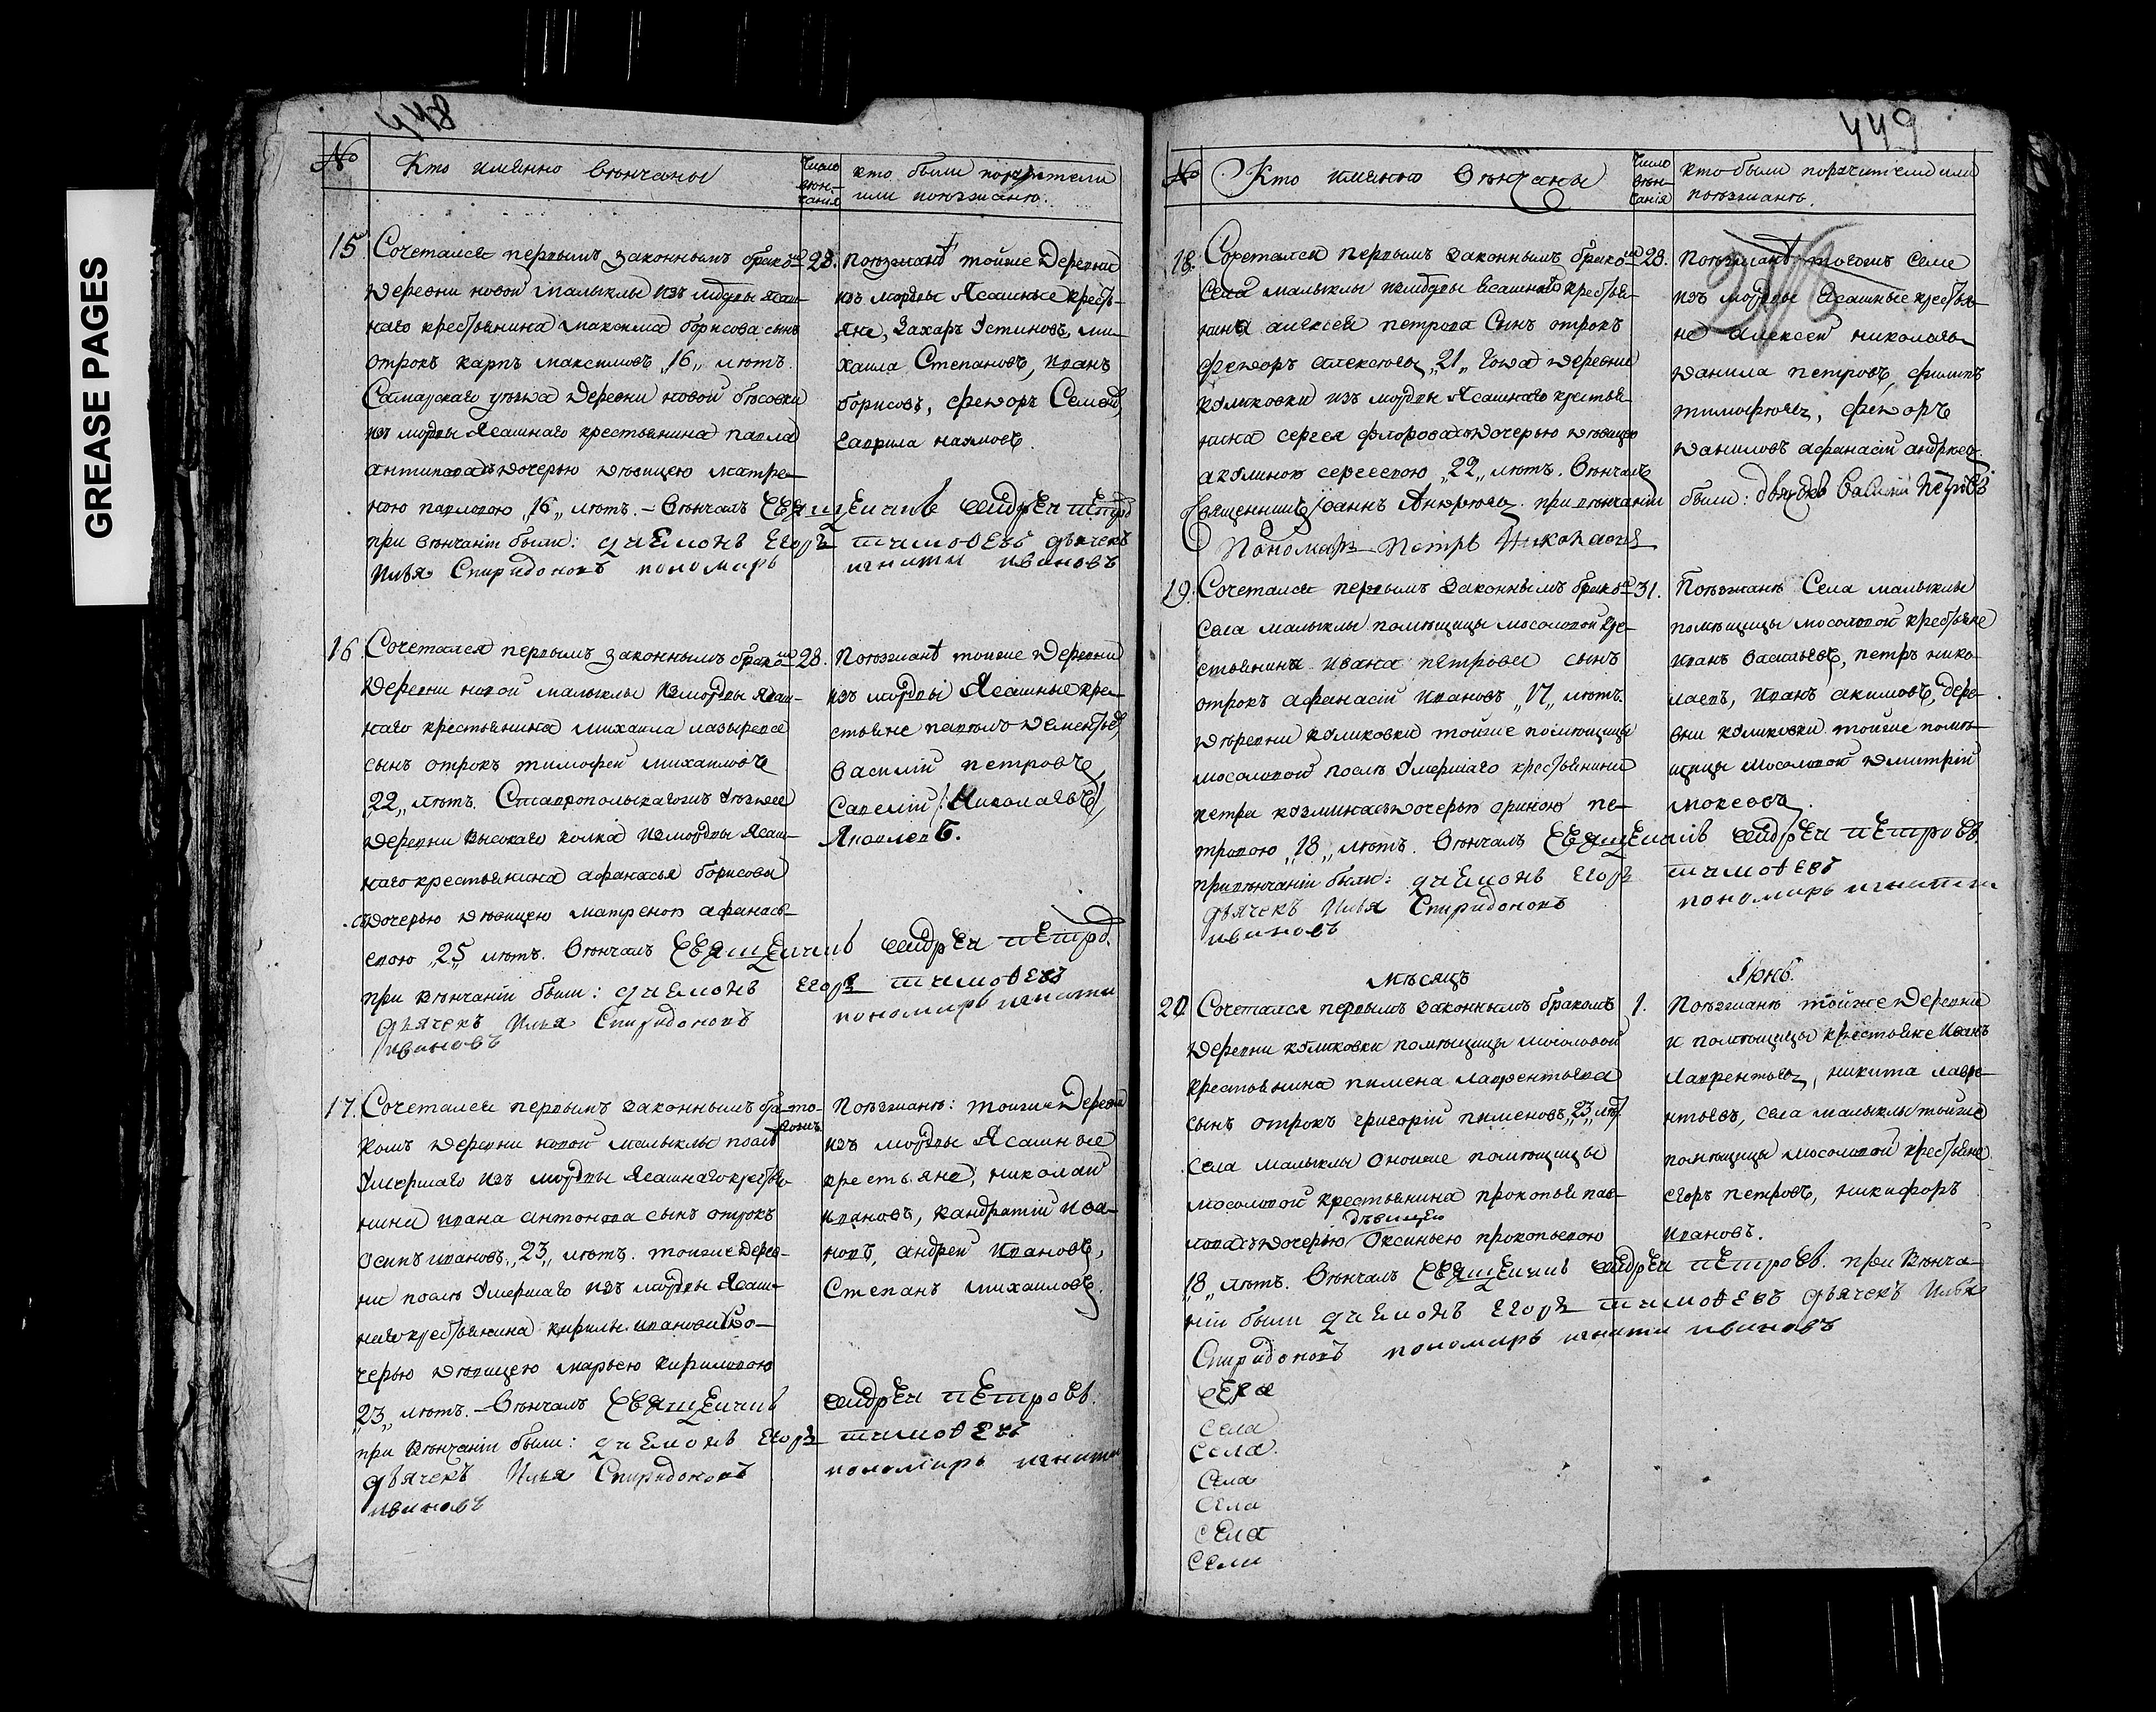 GREASE PAGES
448
№
Кто имянно вѣнчаны
Число вѣн-
чания
кто были поручители
или поѣзжанѣ.
15
Сочетался первымъ законнымъ бракомъ
28.
деревни новой малыклы изъ мордвы ясаш-
наго крестьянина максима борисова сынъ
отрокъ карпъ максимовъ „16„ лѣтъ.
Самарскаго уѣзда деревни новой бѣсовки
изъ мордвы ясашнаго крестьянина павла
антипова съ дочерью дѣвицею матре-
ною павловою „16„ лѣтъ. – Вѣнчалъ священникъ андрей петровъ
при вѣнчаніи были: диаконъ егоръ тимоѳеевъ дьячекъ
Илья Спиридоновъ пономарь игнати ивановъ
Поѣзжанѣ тойже деревни
изъ мордвы Ясашные кресть-
яне, Захаръ Устиновъ, ми-
хаила Степановъ, иванъ
борисовъ, федоръ Семенов
гаврила наумовъ.
16.
Сочетался первымъ законнымъ бракомъ
28.
деревни новой малыклы изъ мордвы ясаш-
наго крестьянина михаила лазырева
сынъ отрокъ тимофей михаиловъ
„22„ лѣтъ. Ставропольскагожъ уѣзда
деревни высокаго колка изъ мордвы ясаш-
наго крестьянина афанасья борисова
съ дочерью дѣвицею матреною афанась-
евою „25„ лѣтъ. Вѣнчалъ священникъ андрей петров.
при вѣнчаніи были: диаконъ егоръ тимоѳеевъ
дьячекъ Илья Спиридоновъ пономарь игнати
ивановъ
Поѣзжанѣ тойже деревни
изъ мордвы Ясашные кре-
стьяне
Василій петровъ,
Савелій Николаевъ,
Яковлевъ.
17.
Сочетался первымъ законнымъ бра-
того-
жъ
комъ деревни новой малыклы послѣ
умершаго изъ мордвы ясашнаго кресть-
нина ивана антонова сынъ отрокъ
осипъ ивановъ „23„ лѣтъ. тойже дерев-
ни послѣ умершаго изъ мордвы ясаш-
наго крестьянина кирилы иванова съ до-
черью дѣвицею марьею кириловою
„23„ лѣтъ. – Вѣнчалъ священникъ андрей петровъ.
при вѣнчаніи были: диаконъ егоръ тимоѳеевъ
дьячекъ Илья Спиридоновъ пономарь игнати
ивановъ
Поѣзжанѣ: тойже деревни
изъ мордвы Ясашные
крестьяне, николай
ивановъ, кандратій ива-
новъ, андрей ивановъ,
Степанъ михаиловъ.
449
№
Кто имянно вѣнчаны
Число вѣн-
чанія
Кто были поручители или
поѣзжанѣ.
18.
Сочетался первымъ законнымъ бракомъ
28.
села малыклы изъ мордвы ясашнаго крестья-
нина алексея петрова сынъ отрокъ
федоръ алексѣевъ „21„ года деревни
куликовки изъ мордвы ясашнаго крестья-
нина сергея флорова съ дочерью дѣвицею
акулиною сергеевою „22„ лѣтъ. Вѣнчалъ
священникъ Иоаннъ Андрѣевъ. при вѣнчаніи были: дьячекъ Василій Петровъ
Пономарь Петръ Николаевъ
Поѣзжанѣ тогожъ села
изъ мордвы Ясашные крестья-
не алексей николаевъ
данила петровъ, филипъ
тимофѣевъ, федоръ
даниловъ афанасій андреевъ.
19.
Сочетался первымъ законнымъ бракомъ
31.
села малыклы помѣщицы мосоловой кре-
стьянина ивана петрова сынъ
отрокъ афанасій ивановъ „17„ лѣтъ.
деревни куликовки тойже помѣщицы
мосоловой послѣ умершаго крестьянина
петра козмина съ дочерью ориною пе-
тровою „18„ лѣтъ. Вѣнчалъ священникъ андрей петровъ.
при вѣнчаніи были: диаконъ егоръ тимоѳеевъ
дьячекъ Илья Спиридоновъ пономарь игнати
ивановъ
Поѣзжанѣ Села малыклы
помѣщицы мосоловой крестьяне
иванъ васильевъ, петръ нико-
лаевъ, иванъ акимовъ, дере-
вни куликовки тойже помѣ-
щицы мосоловой дмитрій
мокеевъ.
мѣсяцъ
Іюнь.
20.
Сочетался первымъ законнымъ бракомъ
1.
деревни куликовки помѣщицы мосоловой
крестьянина пимена лаврентьева
сынъ отрокъ григорій пименовъ „23„ лѣт
села малыклы оноиже помѣщицы
мосоловой крестьянина прокопья пав-
дѣвицею
лова съ дочерью Оксиньею прокопьевою
„18„ лѣтъ. Вѣнчалъ священникъ андрей петровъ. при вѣнча-
ніи были диаконъ егоръ тимоѳеевъ дьячекъ Илья
Спиридоновъ пономарь игнати ивановъ
Поѣзжанѣ тойже деревни
и помѣщицы крестьяне иванъ
лаврентьевъ, никита лавре-
нтьевъ, села малыклы тойже
помѣщицы мосоловой крестьяне
егоръ петровъ, никифоръ
ивановъ.
села
села
села
села
села
села
сели